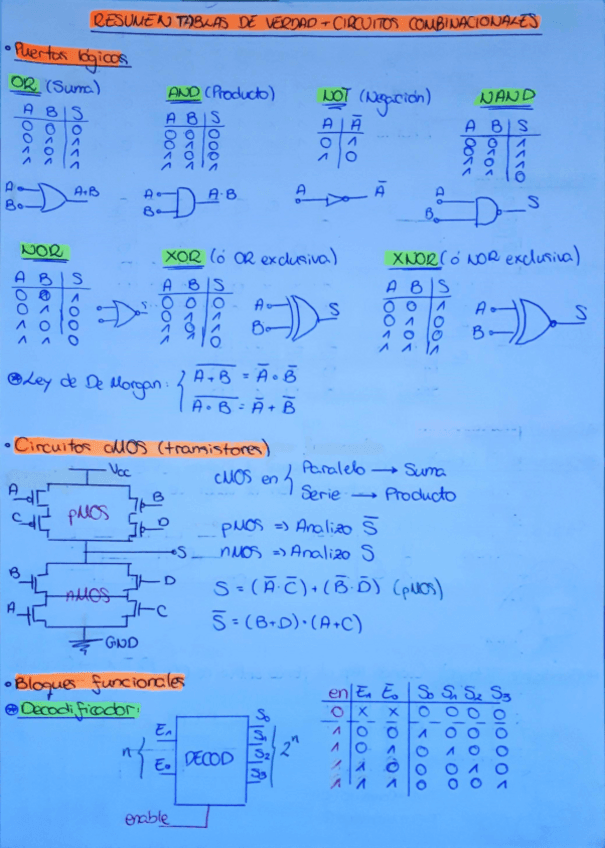 RESUMEN TABLAS DE VERDAD + CIRCUITOS COMBINACIONALES
• Puertas lógicas
OR (Suma) AND (Producto) NOT (Negación) NAND
A B | S A B | S A | Ā A B | S
0 0 0 0 0 0 0 1 0 0 1
0 1 1 0 1 0 1 0 0 1 1
1 0 1 1 0 0 1 0 1
1 1 1 1 1 1 1 1 0
A B A+B A B A·B A Ā A B S
NOR XOR (ó OR exclusiva) XNOR (ó NOR exclusiva)
A B | S A B | S A B | S
0 0 1 0 0 0 0 0 1
0 1 0 0 1 1 0 1 0
1 0 0 1 0 1 1 0 0
1 1 0 1 1 0 1 1 1
S A B S A B S
Ley de De Morgan: { \overline{A+B} = Ā · B̄
\overline{A·B} = Ā + B̄
• Circuitos cMOS (transistores)
Vcc
cMOS en { Paralelo → Suma
Serie → Producto
A B
pMOS
C D
pMOS => Analizo S̄
S
nMOS => Analizo S
B D
nMOS
A C
S = (Ā·C̄)+(B̄·D̄) (pMOS)
S̄ = (B+D)·(A+C)
GND
• Bloques funcionales
Decodificador:
en | E₁ E₀ | S₀ S₁ S₂ S₃
0 x x 0 0 0 0
1 0 0 1 0 0 0
1 0 1 0 1 0 0
1 1 0 0 0 1 0
1 1 1 0 0 0 1
n { E₁ E₀ DECOD S₀ S₁ S₂ S₃ } 2ⁿ
enable